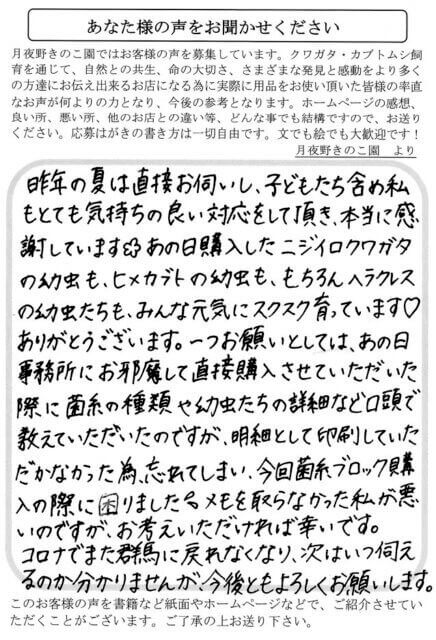 あなた様の声をお聞かせください
月夜野きのこ園ではお客様の声を募集しています。クワガタ・カブトムシ飼
育を通じて、自然との共生、命の大切さ、さまざまな発見と感動をより多く
の方達にお伝え出来るお店になる為に実際に用品をお使い頂いた皆様の率直
なお声が何よりの力となり、今後の参考となります。ホームページの感想、
良い所、悪い所、他のお店との違い等、どんな事でも結構ですので、お送り
ください。応募はがきの書き方は一切自由です。文でも絵でも大歓迎です！
月夜野きのこ園　より
昨年の夏は直接お伺いし、子どもたち含め私
もとても気持ちの良い対応をして頂き、本当に感
謝しています あの日購入したニジイロクワガタ
の幼虫も、ヒメカブトの幼虫も、もちろんヘラクレス
の幼虫たちも、みんな元気にスクスク育っています♡
ありがとうございます。一つお願いとしては、あの日
事務所にお邪魔して直接購入させていただいた
際に菌糸の種類や幼虫たちの詳細など口頭で
教えていただいたのですが、明細として印刷していた
だかなかった為、忘れてしまい、今回菌糸ブロック購
入の際に困りました メモを取らなかった私が悪
いのですが、お考えいただければ幸いです。
コロナでまた群馬に戻れなくなり、次はいつ伺え
るのか分かりませんが、今後ともよろしくお願いします。
このお客様の声を書籍など紙面やホームページなどで、ご紹介させてい
ただくことがございます。ご了承の上お送り下さい。